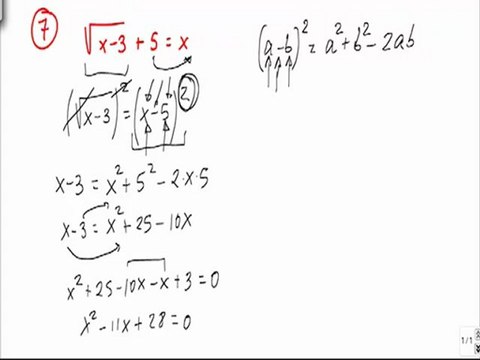 7
√x-3 + 5 = x
(a-b)² = a²+b²-2ab
(√x-3)² = (x-5)²
x-3 = x²+5²-2·x·5
x-3 = x²+25-10x
x²+25-10x-x+3=0
x²-11x+28=0
1/1